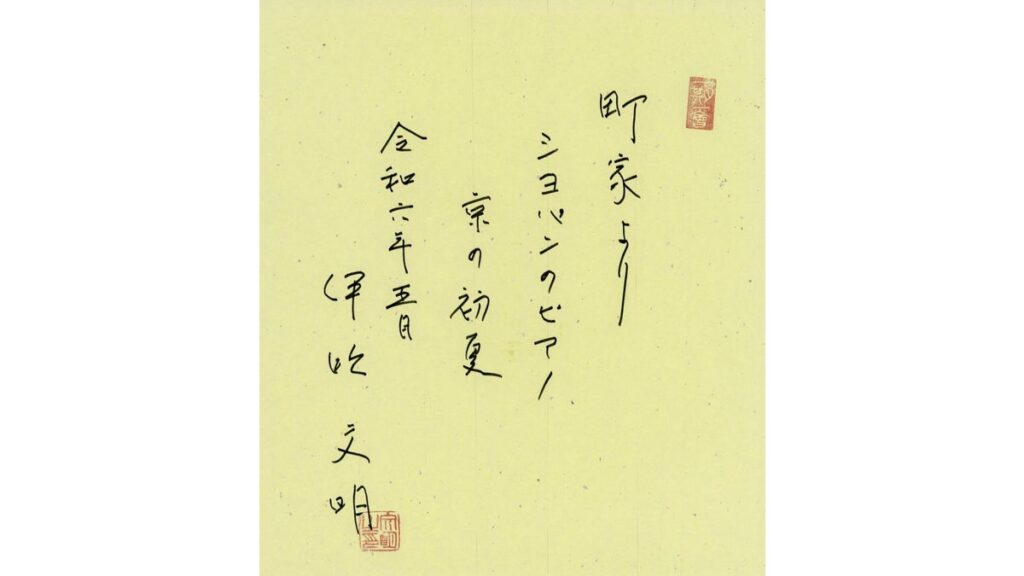 町家より
シヨパンのピアノ
京の初夏
令和六年五月
伊吹文明